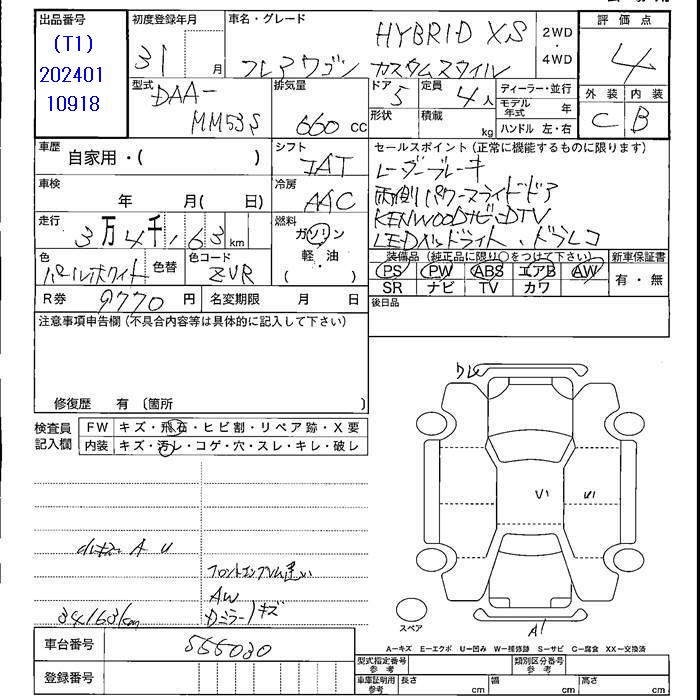 出品番号
(T1)
202401
10918
初度登録年月
31 月
車名・グレード
HYBRID XS
フレアワゴン カスタムスタイル
2WD
・
4WD
評価点
4
外装 内装
C B
型式
DAA-
MM53S
排気量
660 cc
ドア
5
定員
4人
ディーラー・並行
モデル年式 年
ハンドル 左・右
形状
積載
kg
車歴
自家用・( )
シフト
IAT
セールスポイント(正常に機能するものに限ります)
レーダーブレーキ
両側パワースライドドア
KENWOODナビ・DTV
LEDヘッドライト、ドラレコ
車検
年 月( 日)
冷房
AAC
走行
3万4千,163km
燃料
ガソリン
・
軽・油
( )
色
パールホワイト
色替
色コード
ZVR
装備品(純正品に限り○をつけて下さい)
PS PW ABS エアB AW
SR ナビ TV カワ
新車保証書
有・無
R券
9770円
名変期限 月 日
後日品
注意事項申告欄(不具合内容等は具体的に記入して下さい)
修復歴 有 〔箇所 〕
検査員
記入欄
FW キズ・飛石・ヒビ割・リペア跡・X要
内装 キズ・汚レ・コゲ・穴・スレ・キレ・破レ
A U
フロントエンブレム違い
AW
Dミラーキズ
34163km
ワレ
U1
U1
A1
スペア
A-キズ E-エクボ U-凹み W-補修跡 S-サビ C-腐食 XX-交換済
車台番号
555030
登録番号
型式指定番号
参考
類別区分番号
参考
車庫証明用
参考
長さ cm
幅 cm
高さ cm